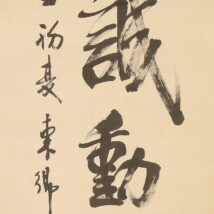 誠動
初夏東郷